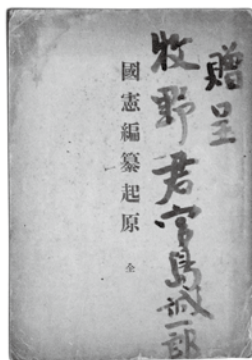 贈呈
牧野君宮島誠一郎
國憲編纂起原 全